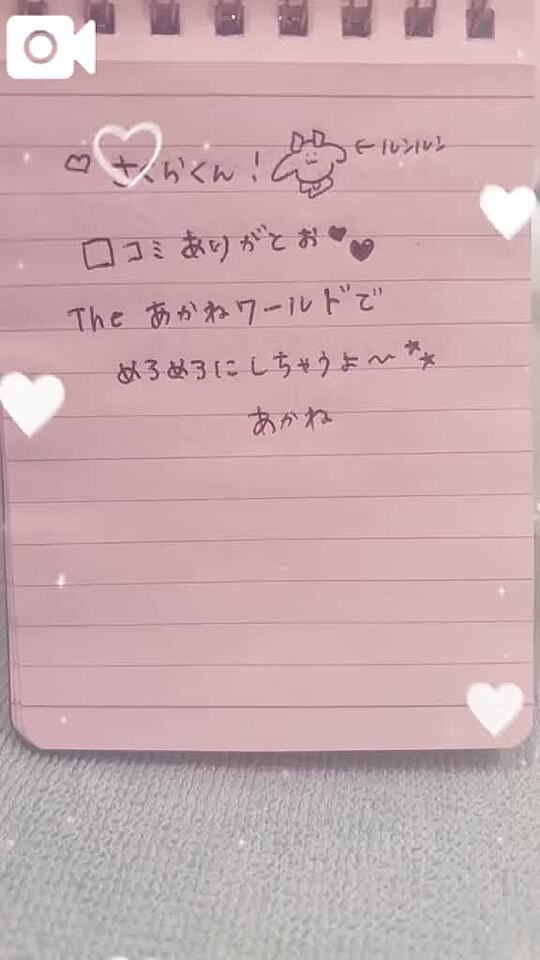 ♡ さくらくん! ←ルンルン
口コミ ありがとお♥♥
The あかねワールドで
めろめろにしちゃうよ〜☆☆
あかね